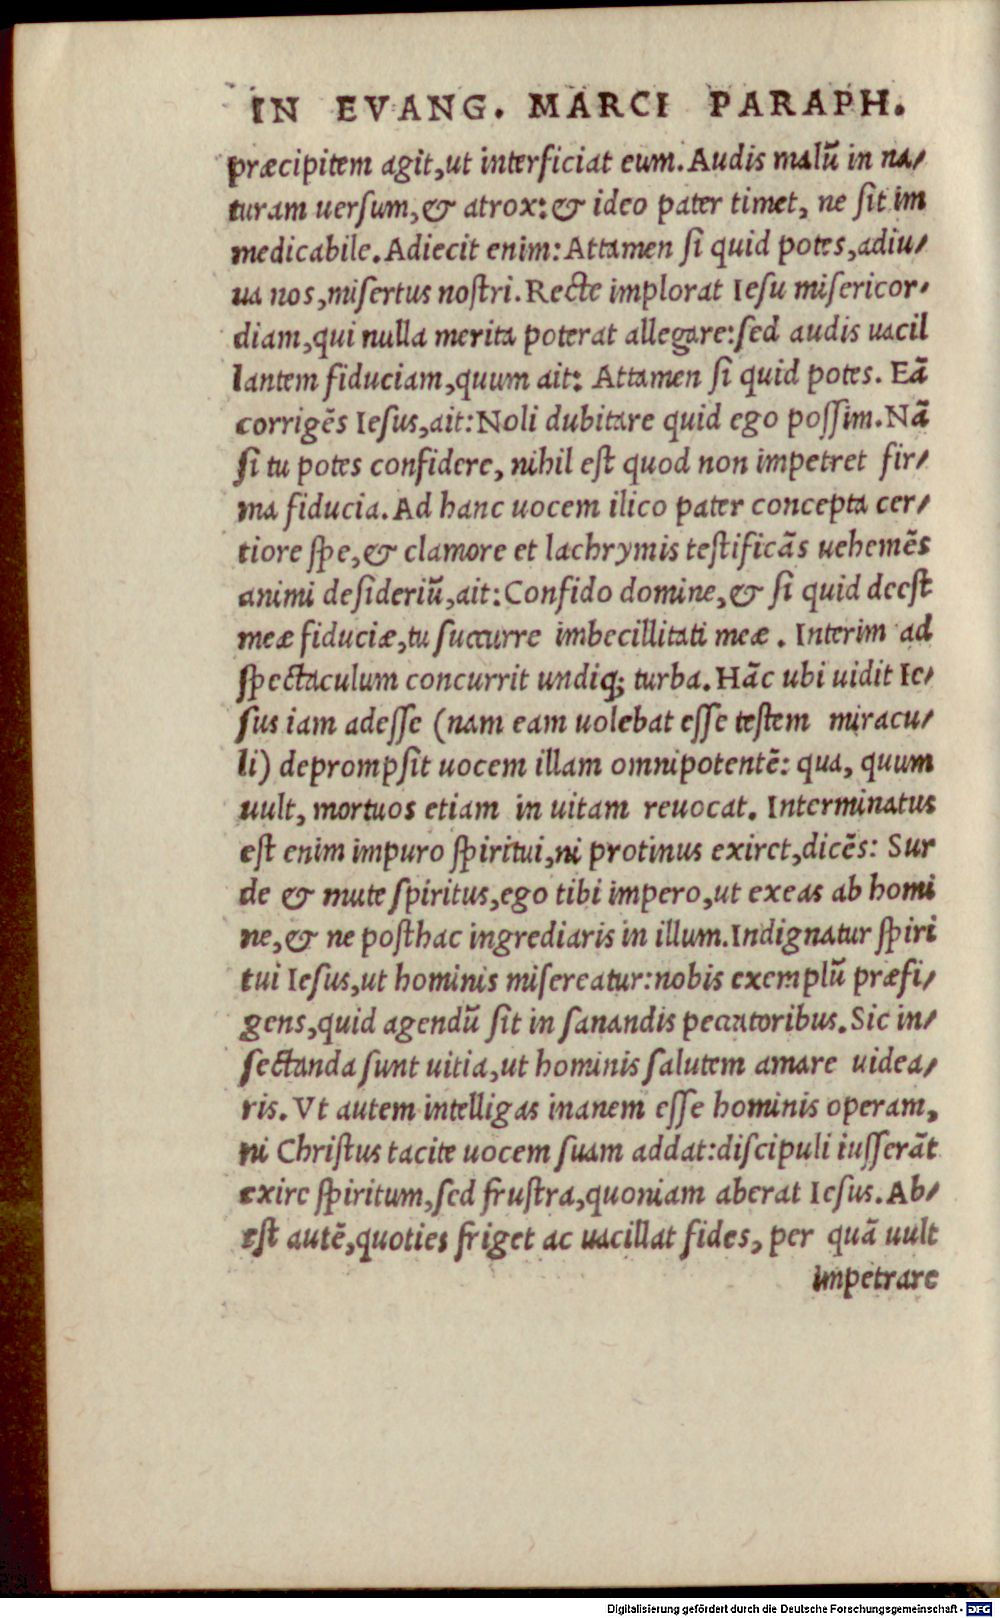 IN EVANG. MARCI PARAPH.
præcipitem agit,ut interficiat eum.Audis malũ in na⸗
turam uerſum,& atrox:& ideo pater timet, ne ſit im
medicabile.Adiecit enim:Attamen ſi quid potes,adiu⸗
ua nos,miſertus noſtri.Recte implorat Ieſu miſericor⸗
diam,qui nulla merita poterat allegare:ſed audis uacil
lantem fiduciam,quum ait: Attamen ſi quid potes. Eã
corrigẽs Ieſus,ait:Noli dubitare quid ego poſſim.Nã
ſi tu potes confidere, nihil eſt quod non impetret fir⸗
ma fiducia.Ad hanc uocem ilico pater concepta cer⸗
tiore ſpe,& clamore et lachrymis teſtificãs uehemẽs
animi deſideriũ,ait:Confido domine,& ſi quid deeſt
meæ fiduciæ,tu ſuccurre imbecillitati meæ. Interim ad
ſpectaculum concurrit undiq; turba.Hãc ubi uidit Ie⸗
ſus iam adeſſe (nam eam uolebat eſſe teſtem miracu⸗
li) deprompſit uocem illam omnipotentẽ: qua, quum
uult, mortuos etiam in uitam reuocat. Interminatus
eſt enim impuro ſpiritui,ni protinus exiret,dicẽs: Sur
de & mute ſpiritus,ego tibi impero,ut exeas ab homi
ne,& ne poſthac ingrediaris in illum.Indignatur ſpiri
tui Ieſus,ut hominis miſereatur:nobis exemplũ præfi⸗
gens,quid agendũ ſit in ſanandis peccatoribus.Sic in⸗
ſectanda ſunt uitia,ut hominis ſalutem amare uidea⸗
ris. Vt autem intelligas inanem eſſe hominis operam,
ni Chriſtus tacite uocem ſuam addat:diſcipuli iuſſerãt
exire ſpiritum,ſed fruſtra,quoniam aberat Ieſus.Ab⸗
eſt autẽ,quoties friget ac uacillat fides, per quã uult
impetrare
Digitalisierung gefördert durch die Deutsche Forschungsgemeinschaft - DFG